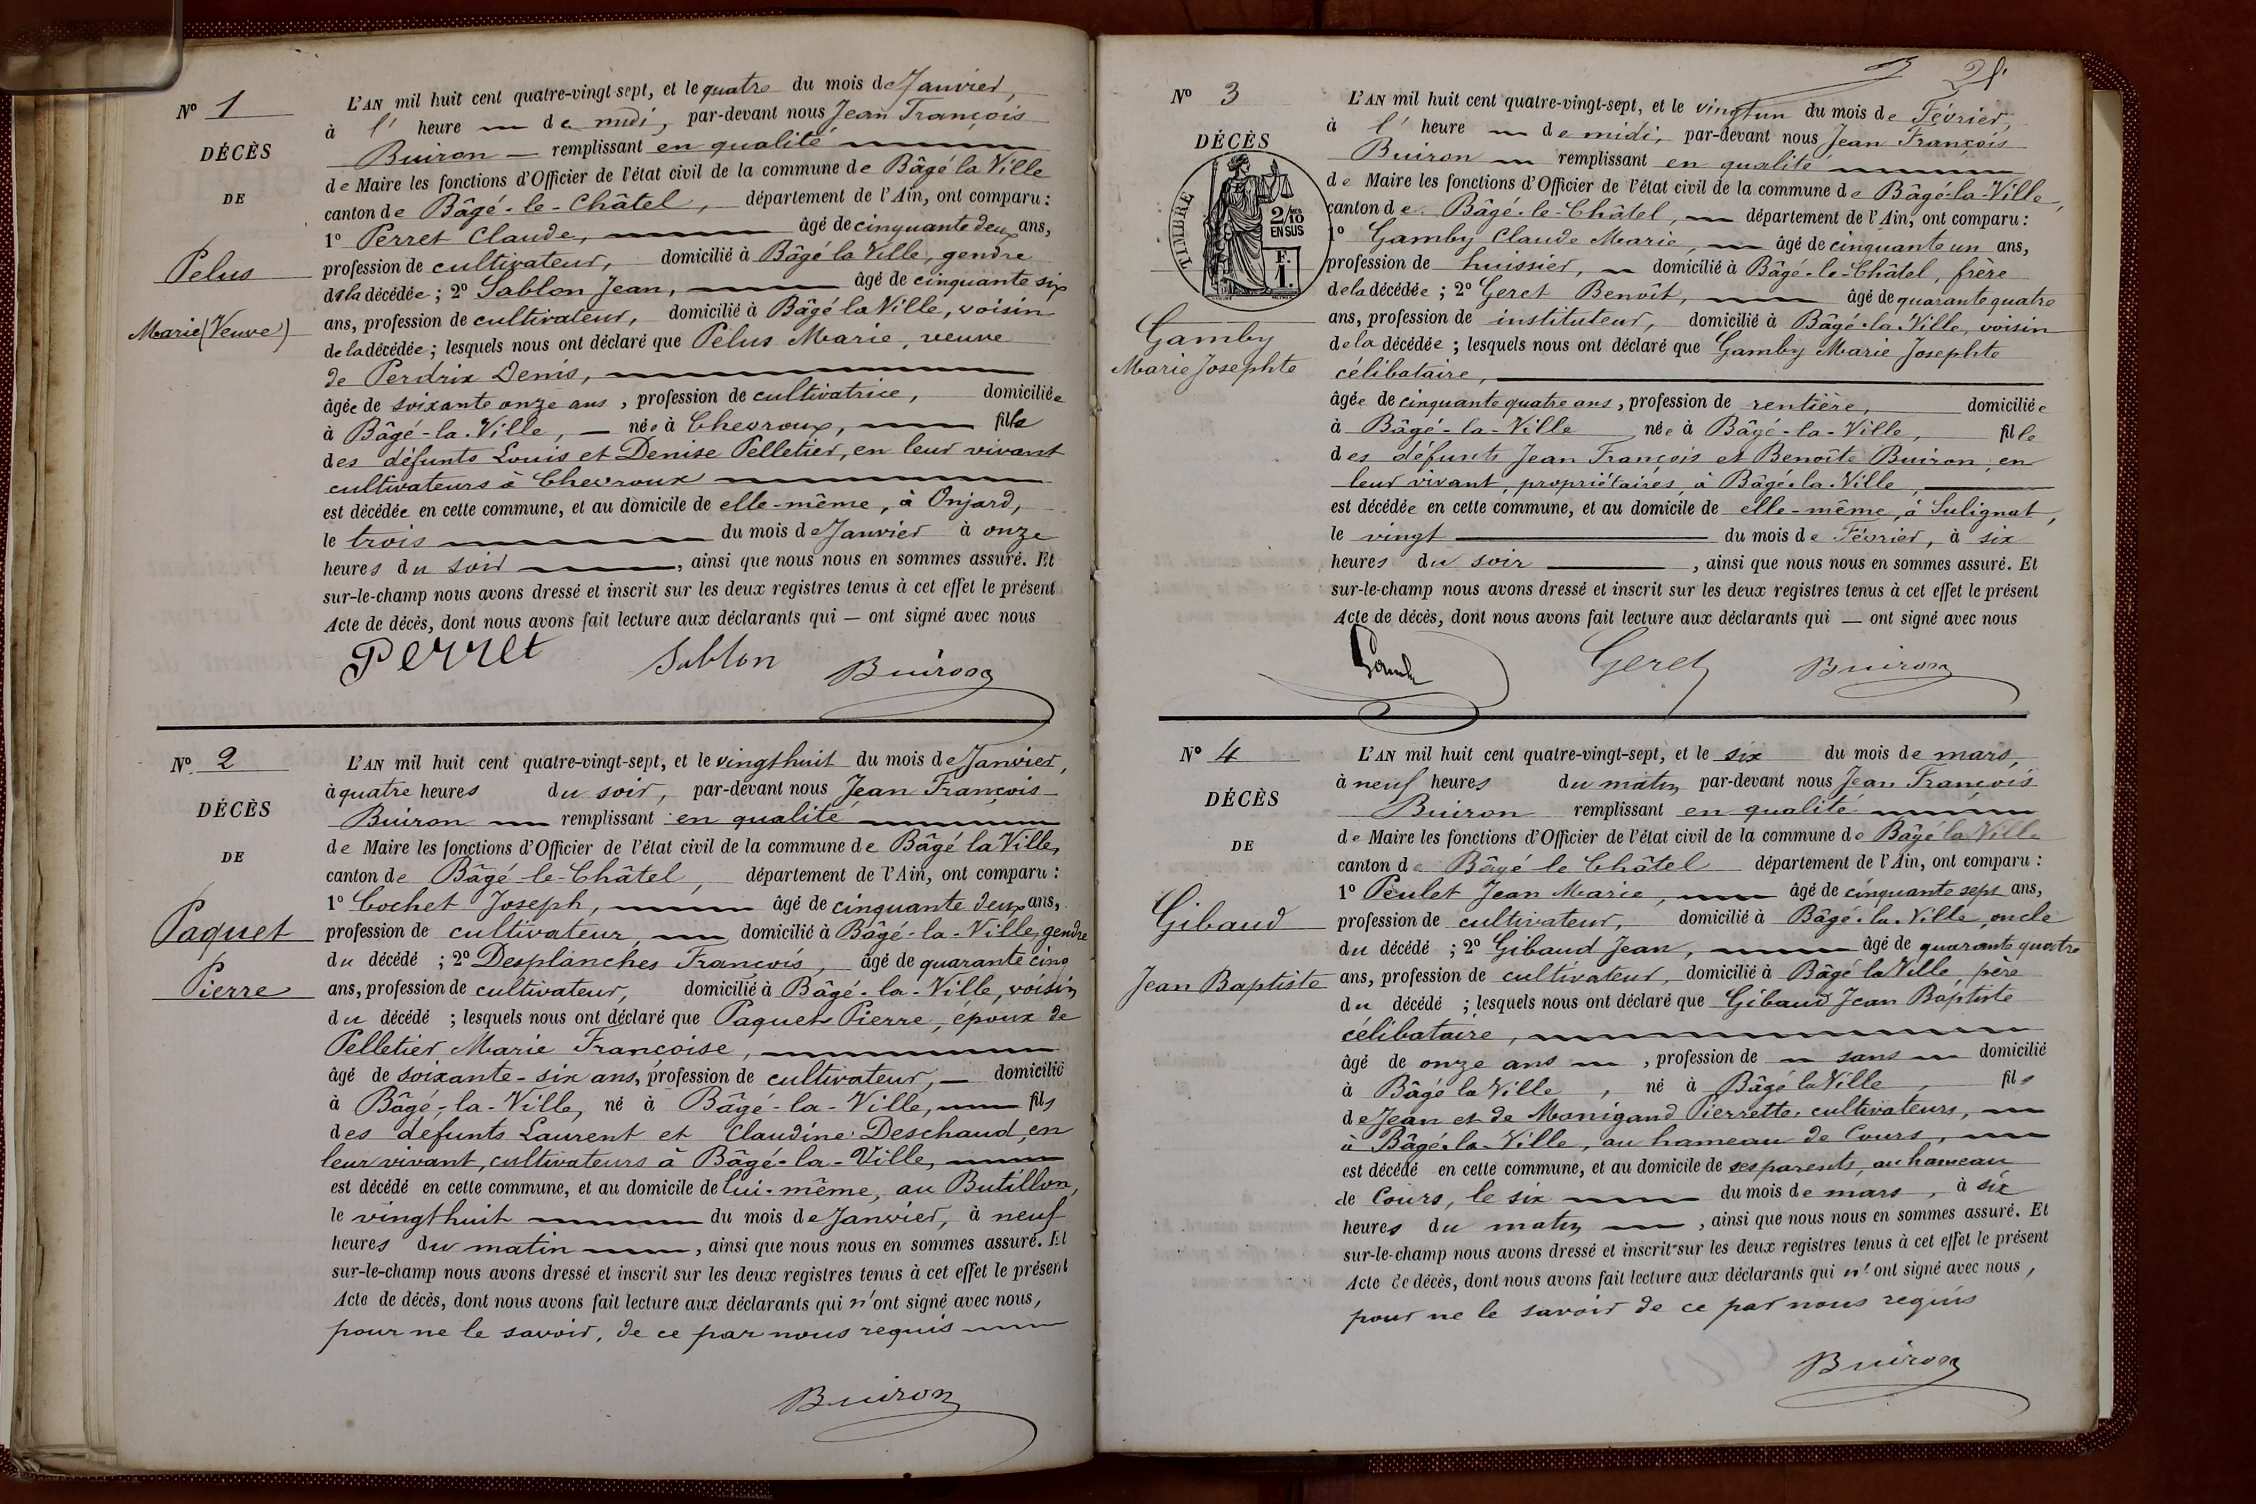 N° 1
DÉCÈS
DE
Pelus
Marie (Veuve)
L'AN mil huit cent quatre-vingt sept, et le quatre du mois de Janvier,
à l' heure de midi, par-devant nous Jean François
Buiron remplissant en qualité
de Maire les fonctions d'Officier de l'état civil de la commune de Bâgé la Ville
canton de Bâgé-le-Châtel, département de l'Ain, ont comparu :
1° Perret Claude, âgé de cinquante deux ans,
profession de cultivateur, domicilié à Bâgé la Ville, gendre
de la décédée ; 2° Sablon Jean, âgé de cinquante six
ans, profession de cultivateur, domicilié à Bâgé la Ville, voisin
de la décédée ; lesquels nous ont déclaré que Pelus Marie, veuve
de Perdrix Denis,
âgée de soixante onze ans, profession de cultivatrice, domiciliée
à Bâgé-la-Ville, — née à Chevroux, fille
des défunts Louis et Denise Pelletier, en leur vivant
cultivateurs à Chevroux
est décédée en cette commune, et au domicile de elle-même, à Onjard,
le trois du mois de Janvier à onze
heures du soir, ainsi que nous nous en sommes assuré. Et
sur-le-champ nous avons dressé et inscrit sur les deux registres tenus à cet effet le présent
Acte de décès, dont nous avons fait lecture aux déclarants qui — ont signé avec nous
Perret Sablon Buiron
N° 2
DÉCÈS
DE
Paquet
Pierre
L'AN mil huit cent quatre-vingt-sept, et le vingt huit du mois de Janvier,
à quatre heures du soir, par-devant nous Jean François
Buiron remplissant en qualité
de Maire les fonctions d'Officier de l'état civil de la commune de Bâgé la Ville,
canton de Bâgé-le-Châtel, département de l'Ain, ont comparu :
1° Cochet Joseph, âgé de cinquante deux ans,
profession de cultivateur, domicilié à Bâgé-la-Ville, gendre
du décédé ; 2° Desplanches François, âgé de quarante cinq
ans, profession de cultivateur, domicilié à Bâgé-la-Ville, voisin
du décédé ; lesquels nous ont déclaré que Paquet Pierre, époux de
Pelletier Marie Françoise,
âgé de soixante-six ans, profession de cultivateur, — domicilié
à Bâgé-la-Ville, né à Bâgé-la-Ville, fils
des défunts Laurent et Claudine Deschaud, en
leur vivant, cultivateurs à Bâgé-la-Ville,
est décédé en cette commune, et au domicile de lui-même, au Butillon,
le vingt huit du mois de Janvier, à neuf
heures du matin, ainsi que nous nous en sommes assuré. Et
sur-le-champ nous avons dressé et inscrit sur les deux registres tenus à cet effet le présent
Acte de décès, dont nous avons fait lecture aux déclarants qui n'ont signé avec nous,
pour ne le savoir, de ce par nous requis
Buiron
N° 3
DÉCÈS
TIMBRE
2/10 EN SUS
F. 1.
Gamby
Marie Josephte
L'AN mil huit cent quatre-vingt-sept, et le vingt un du mois de Février,
à l' heure de midi, par-devant nous Jean François
Buiron remplissant en qualité
de Maire les fonctions d'Officier de l'état civil de la commune de Bâgé-la-Ville,
canton de Bâgé-le-Châtel, département de l'Ain, ont comparu :
1° Gamby Claude Marie, âgé de cinquante un ans,
profession de huissier, domicilié à Bâgé-le-Châtel, frère
de la décédée ; 2° Geret Benoît, âgé de quarante quatre
ans, profession de instituteur, domicilié à Bâgé-la-Ville, voisin
de la décédée ; lesquels nous ont déclaré que Gamby Marie Josephte
célibataire,
âgée de cinquante quatre ans, profession de rentière, domiciliée
à Bâgé-la-Ville née à Bâgé-la-Ville, fille
des défunts Jean François et Benoîte Buiron, en
leur vivant, propriétaires, à Bâgé-la-Ville,
est décédée en cette commune, et au domicile de elle-même, à Sulignat,
le vingt du mois de Février, à six
heures du soir, ainsi que nous nous en sommes assuré. Et
sur-le-champ nous avons dressé et inscrit sur les deux registres tenus à cet effet le présent
Acte de décès, dont nous avons fait lecture aux déclarants qui — ont signé avec nous
Geret Buiron
N° 4
DÉCÈS
DE
Gibaud
Jean Baptiste
L'AN mil huit cent quatre-vingt-sept, et le six du mois de mars,
à neuf heures du matin par-devant nous Jean François
Buiron remplissant en qualité
de Maire les fonctions d'Officier de l'état civil de la commune de Bâgé la Ville
canton de Bâgé le Châtel département de l'Ain, ont comparu :
1° Peulet Jean Marie, âgé de cinquante sept ans,
profession de cultivateur, domicilié à Bâgé-la-Ville, oncle
du décédé ; 2° Gibaud Jean, âgé de quarante quatre
ans, profession de cultivateur, domicilié à Bâgé la Ville père
du décédé ; lesquels nous ont déclaré que Gibaud Jean Baptiste
célibataire,
âgé de onze ans, profession de sans domicilié
à Bâgé la Ville, né à Bâgé la Ville, fils
de Jean et de Manigand Pierrette, cultivateurs,
à Bâgé-la-Ville, au hameau de Cours,
est décédé en cette commune, et au domicile de ses parents, au hameau
de Cours, le six du mois de mars, à six
heures du matin, ainsi que nous nous en sommes assuré. Et
sur-le-champ nous avons dressé et inscrit sur les deux registres tenus à cet effet le présent
Acte de décès, dont nous avons fait lecture aux déclarants qui n'ont signé avec nous,
pour ne le savoir de ce par nous requis
Buiron